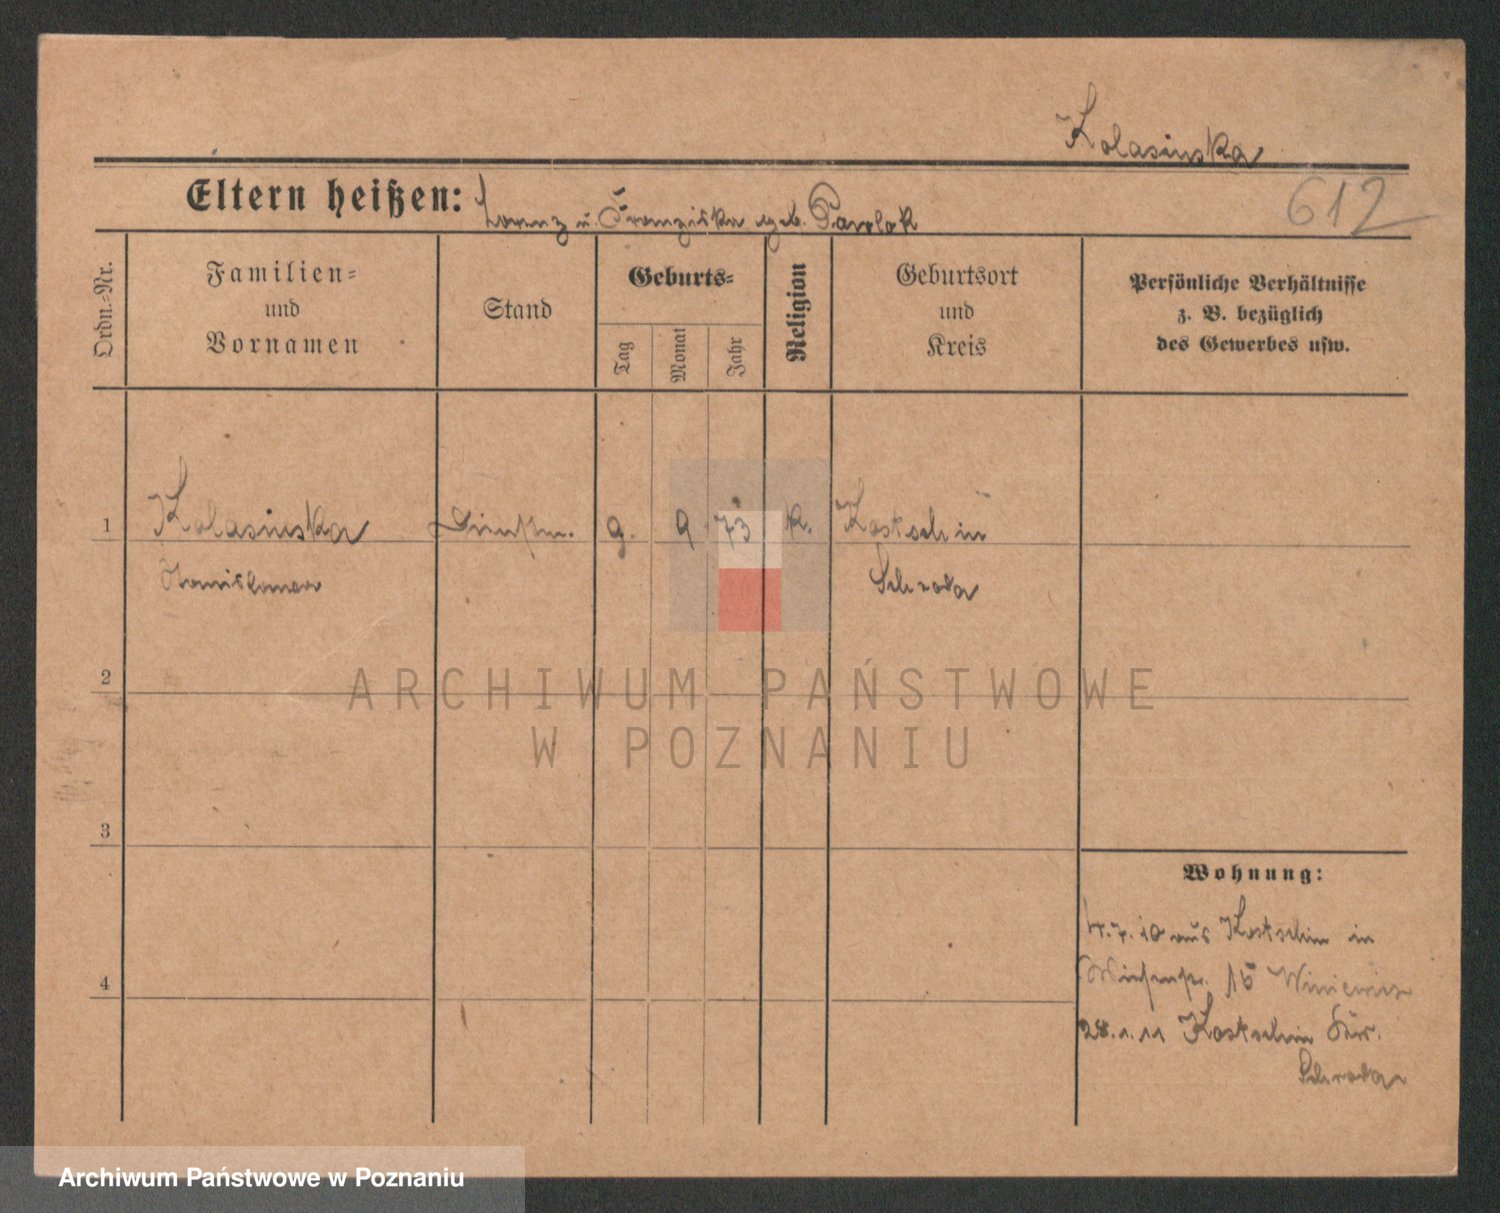 Kolasinska
Eltern heißen: Lorenz u. Franziska geb. Pawlak
612
Ordn.=Nr.
Familien=
und
Vornamen
Stand
Geburts=
Tag
Monat
Jahr
Religion
Geburtsort
und
Kreis
Persönliche Verhältnisse
z. B. bezüglich
des Gewerbes usw.
1 Kolasinska 9. 9 73 K. Kostschin
Schroda
2
3
4
Wohnung:
4.7.10 aus Kostschin in
15
28.1.11 Kostschin Krs.
Schroda
ARCHIWUM PAŃSTWOWE
W POZNANIU
Archiwum Państwowe w Poznaniu